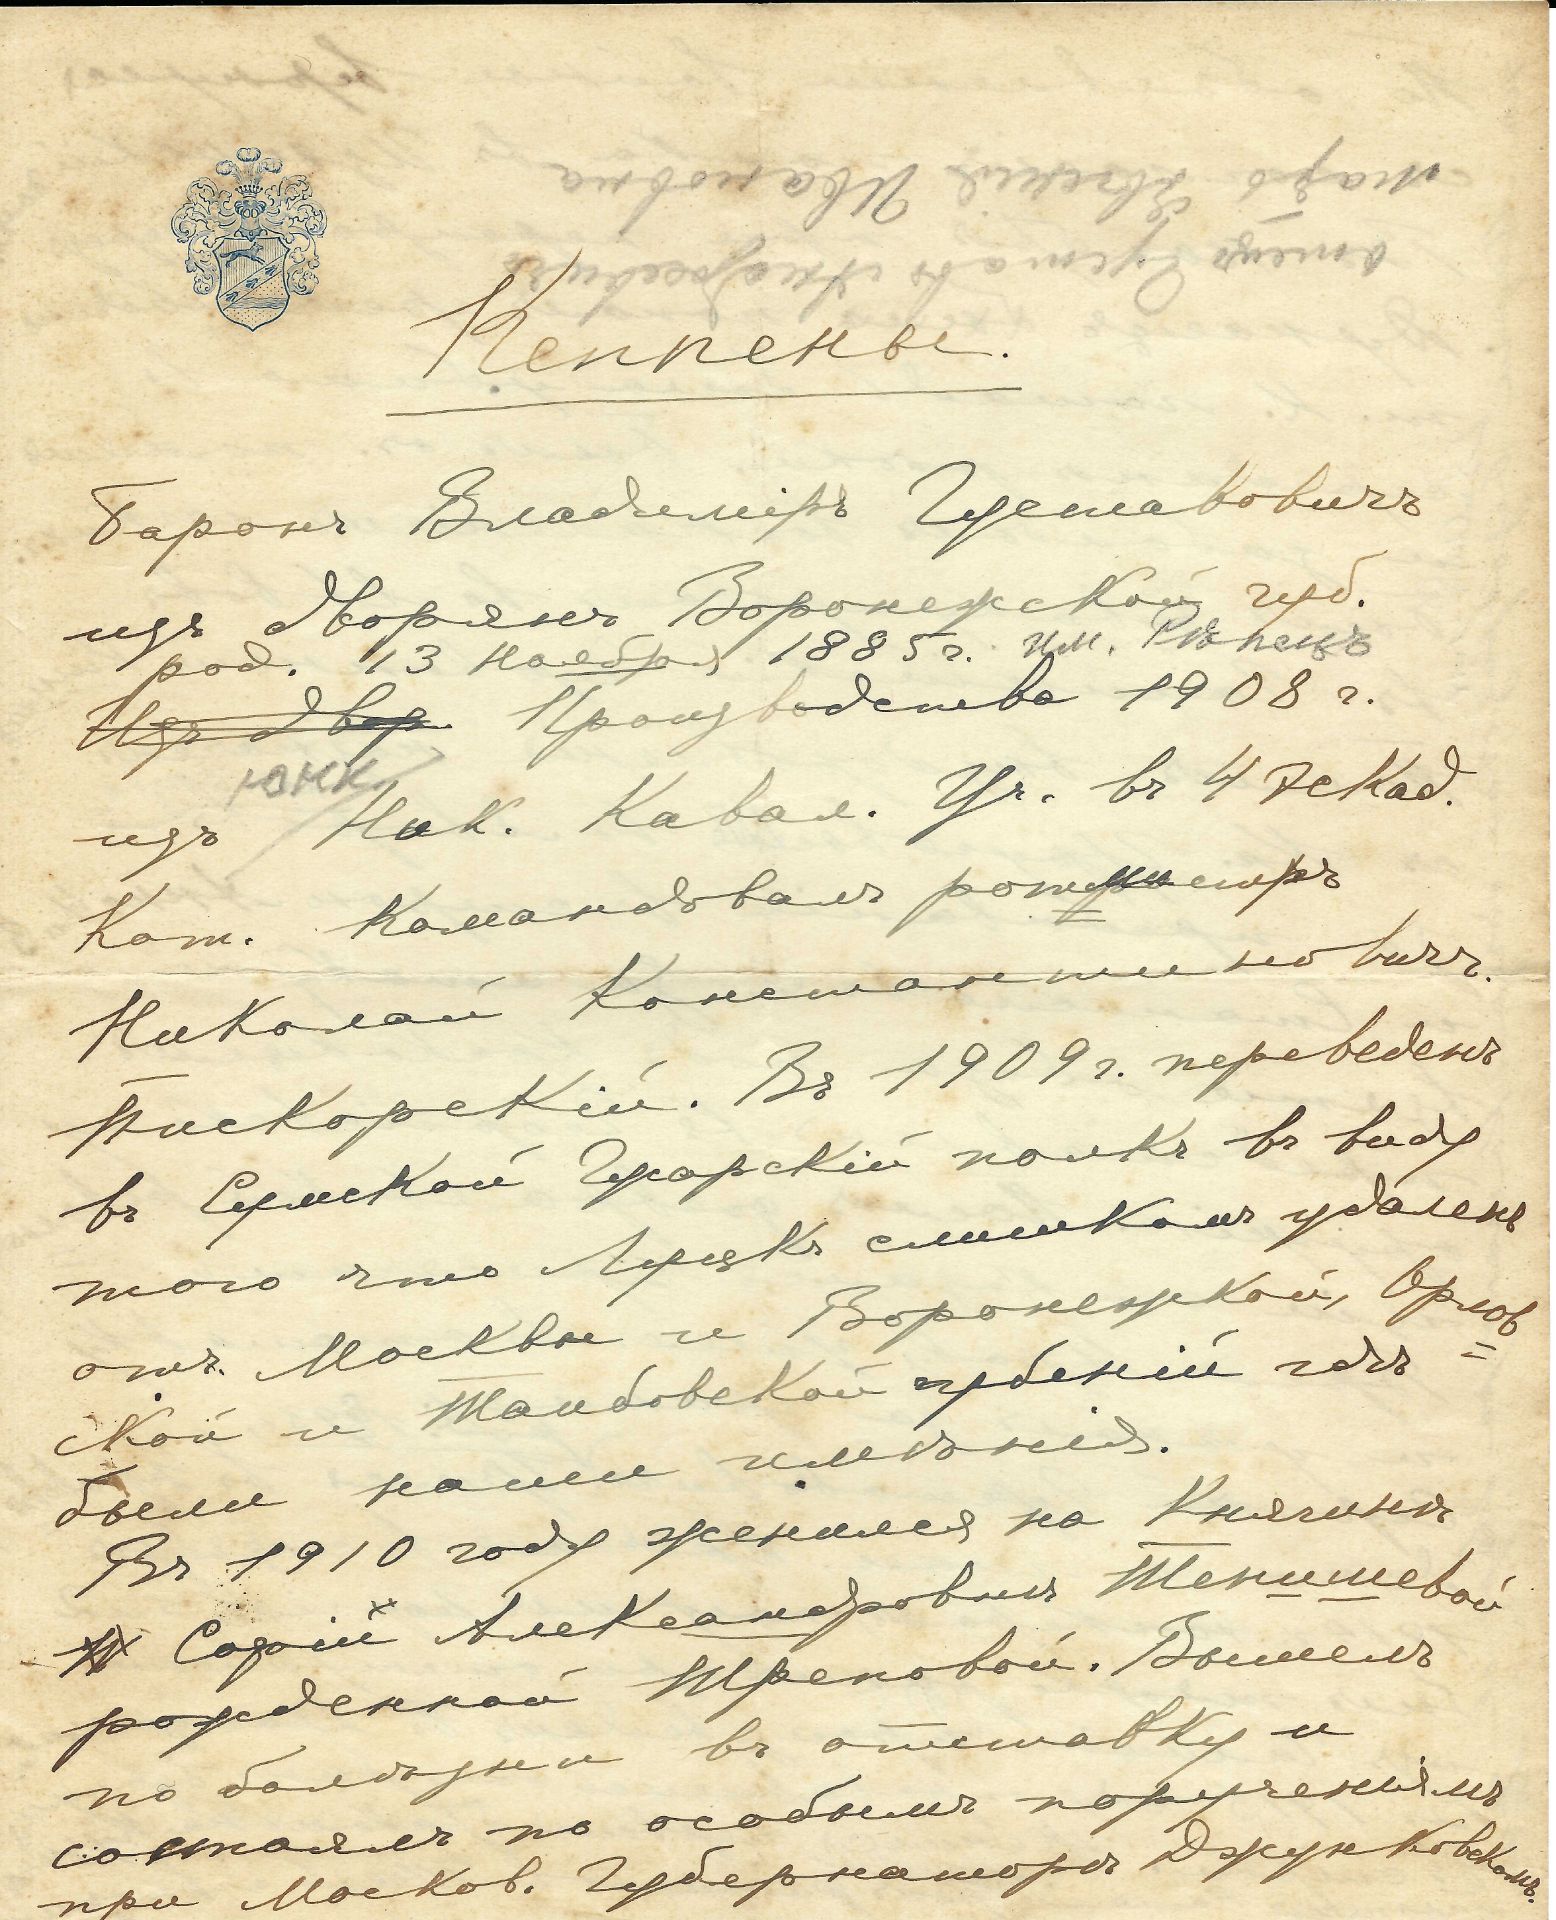 отецъ Густавъ Андреевичъ
мать Евгенія Ивановна
Кеппены.
Баронъ Владиміръ Густавовичъ
изъ дворянъ Воронежской губ.
род. 13 ноября 1885 г. им. Рѣпецъ
Изъ двор. Производства 1908 г.
юнк.
изъ Ник. Кавал. Уч. въ 4 эскад.
Кот. командовалъ ротмистръ
Николай Константиновичъ
Пискорскій. Въ 1909 г. переведенъ
въ Сумской Гусарскій полкъ въ виду
того что Луцкъ слишкомъ удаленъ
отъ Москвы и Воронежской, Орлов=
ской и Тамбовской губерній гдѣ
были наши имѣнія.
Въ 1910 году женился на Княгинѣ
Софіи Александровнѣ Тенишевой
рожденной Треповой. Вышелъ
по болѣзни въ отставку и
состоялъ по особымъ порученіямъ
при Москов. Губернаторѣ Джунковскомъ.